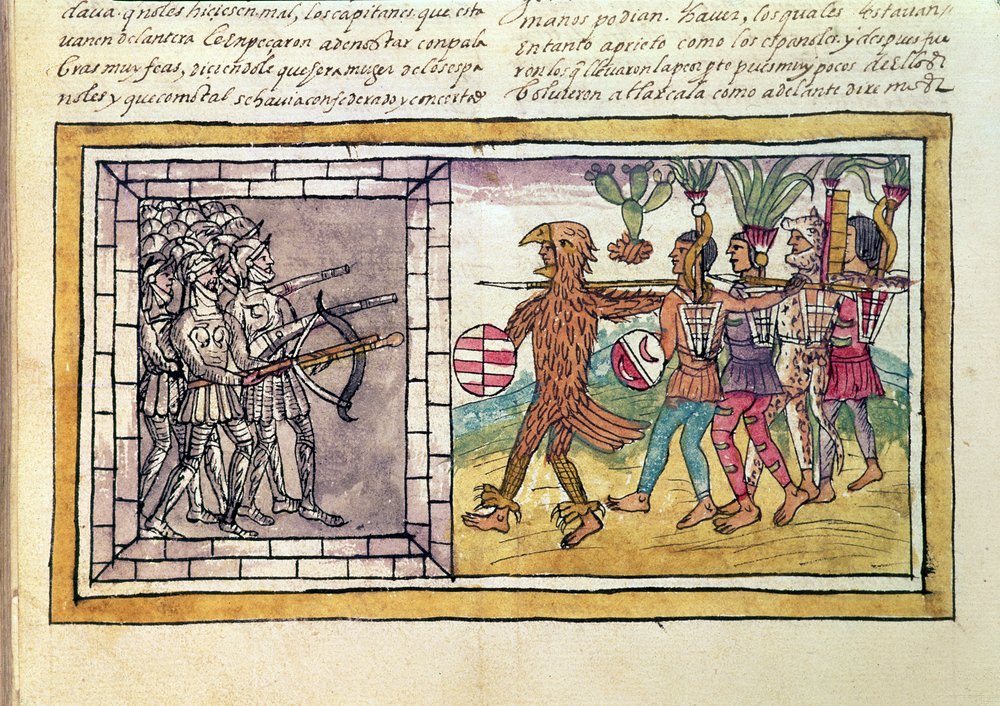 dava. q̃ no les hiciesen mal, los capitanes que esta
van en delantera le enpeçaron a denostar con pala
bras muy feas, diciendole que sera muger de los espa
ñoles y que como tal se havia confederado y concertado
manos podian. haver, los quales estavan
en tanto aprieto como los españoles, y despues fue
ron los q̃ llevaron la peor pte pues muy pocos de ellos
bolvieron a tlaxcala como adelante diremos